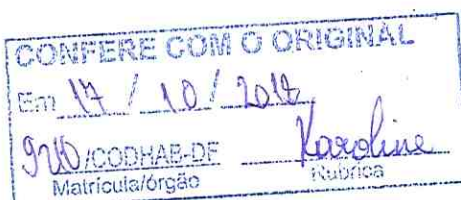 CONFERE COM O ORIGINAL
Em 17 / 10 / 2012
920/CODHAB-DF Karoline
Matrícula/órgão Rubrica